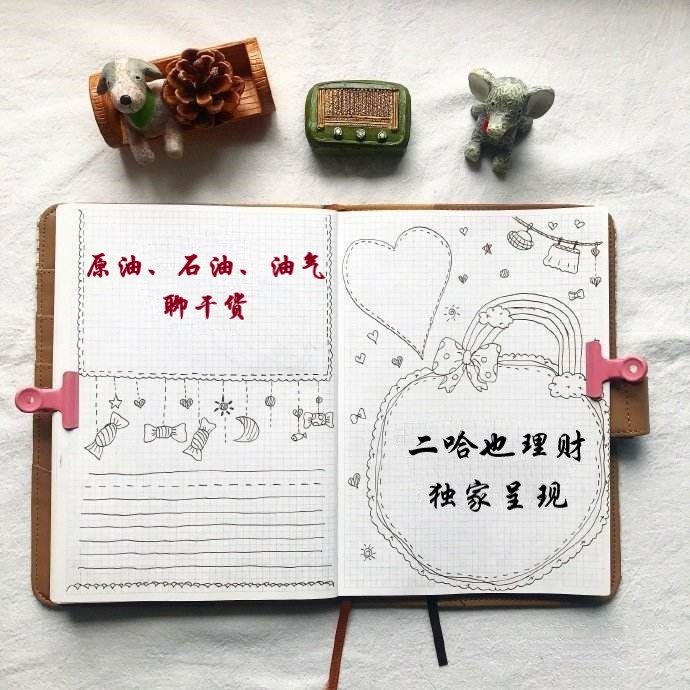 原油、石油、油气
聊干货
二哈也理财
独家呈现